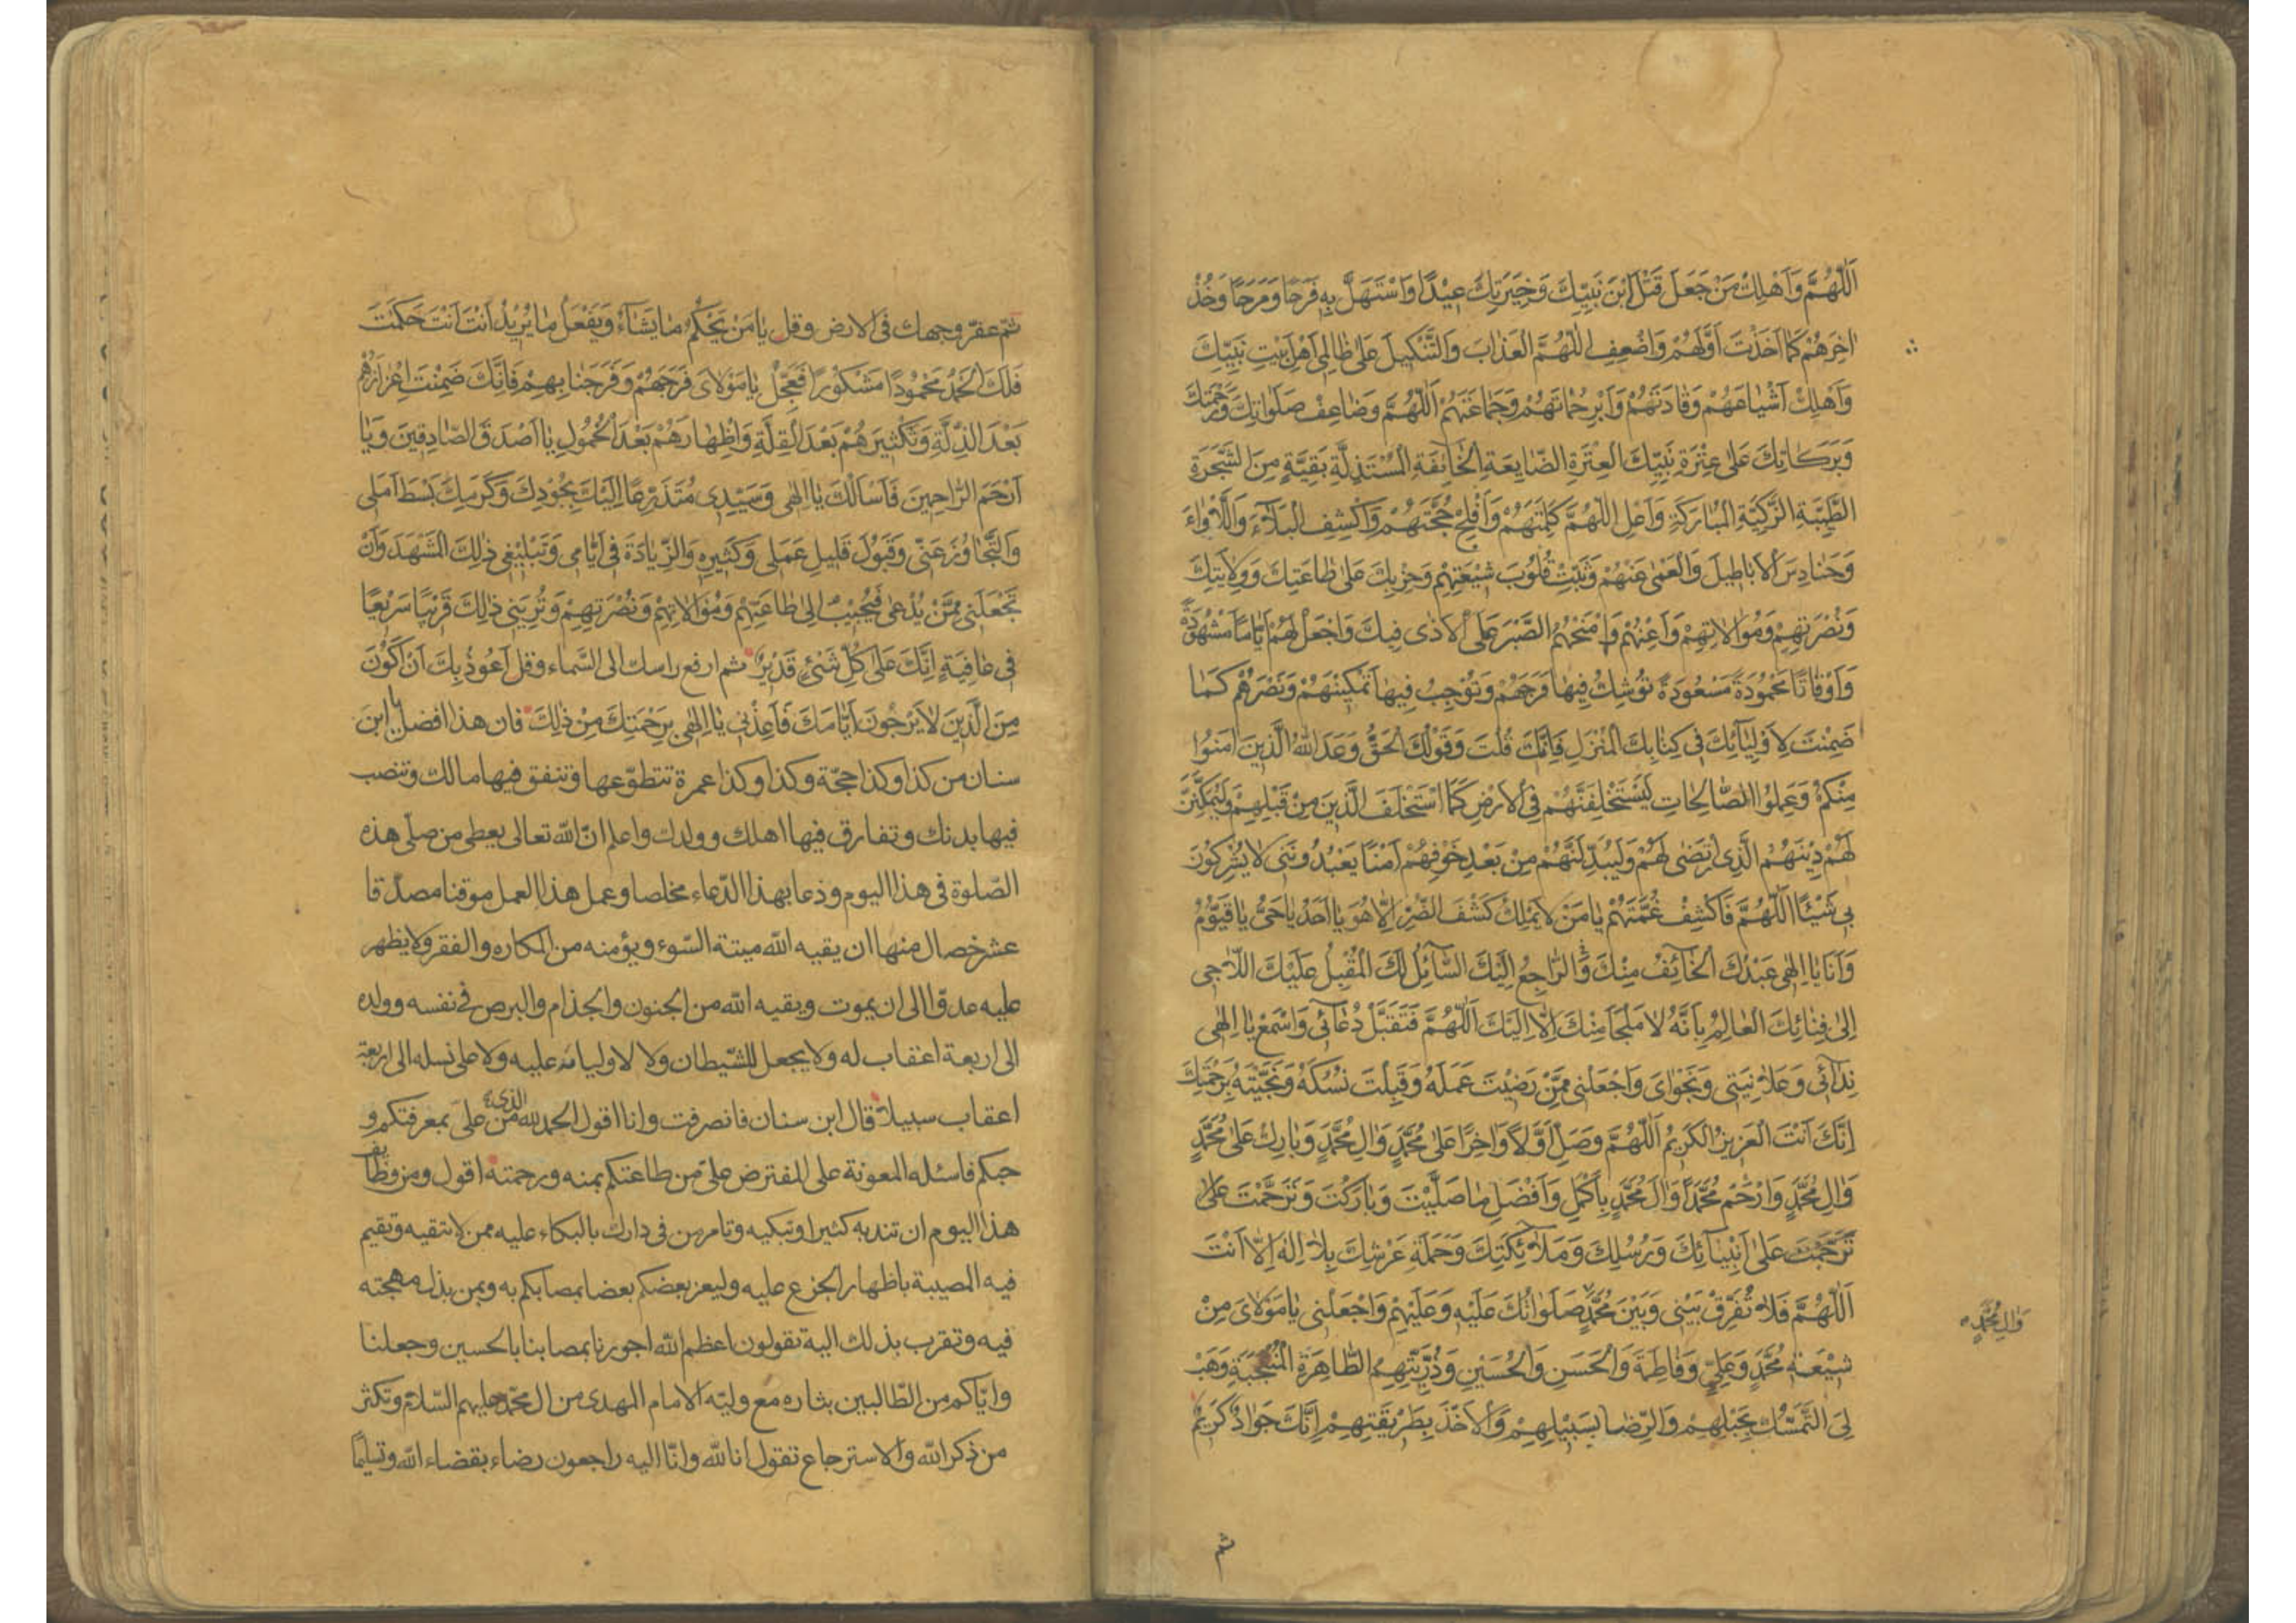 اَللّٰهُمَّ وَاَهْلِكْ مَنْ جَعَلَ قَتْلَ ابْنِ نَبِيِّكَ وَخِيَرَتِكَ عِيْدًا وَاسْتَهَلَّ بِهِ فَرَحًا وَمَرَحًا وَخُذْ
اٰخِرَهُمْ كَمَا اَخَذْتَ اَوَّلَهُمْ وَاَضْعِفِ اللّٰهُمَّ العَذَابَ وَالتَّنْكِيلَ عَلىٰ ظَالِمِى اَهْلِ بَيْتِ نَبِيِّكَ
وَاَهْلِكْ اَشْيَاعَهُمْ وَقَادَتَهُمْ وَاَبِرْ حُمَاتَهُمْ وَجَمَاعَتَهُمْ اَللّٰهُمَّ وَضَاعِفْ صَلَوَاتِكَ وَرَحْمَتَكَ
وَبَرَكَاتِكَ عَلىٰ عِتْرَةِ نَبِيِّكَ العِتْرَةِ الضَّايِعَةِ الخَائِفَةِ المُسْتَذِلَّةِ بَقِيَّةٍ مِنَ الشَّجَرَةِ
الطَّيِّبَةِ الزَّكِيَّةِ المُبَارَكَةِ وَاَعْلِ اللّٰهُمَّ كَلِمَتَهُمْ وَاَفْلِحْ حُجَّتَهُمْ وَاكْشِفِ البَلَآءَ وَاللَّاْوَاءَ
وَحَنَادِسَ الاَبَاطِيلَ وَالْعَمىٰ عَنْهُمْ وَثَبِّتْ قُلُوبَ شِيْعَتِهِمْ وَحِزْبِكَ عَلىٰ طَاعَتِكَ وَوِلَايَتِكَ
وَنُصْرَتِهِمْ وَمُوَالَاتِهِمْ وَاَعِنْهُمْ وَامْنَحْهُمُ الصَّبْرَ عَلَى الاَذٰى فِيكَ وَاجْعَلْ لَهُمْ اَيَّامًا مَشْهُودَةً
وَاَوْقَاتًا مَحْمُودَةً مَسْعُودَةً تُوشِكُ فِيهَا فَرَجَهُمْ وَتُوْجِبُ فِيهَا تَمْكِينَهُمْ وَنَصْرَهُمْ كَمَا
ضَمِنْتَ لِاَوْلِيَآئِكَ فِى كِتَابِكَ الْمُنْزَلِ فَاِنَّكَ قُلْتَ وَقَوْلُكَ الْحَقُّ وَعَدَ اللّٰهُ الَّذِينَ اٰمَنُوا
مِنْكُمْ وَعَمِلُوا الصَّالِحَاتِ لَيَسْتَخْلِفَنَّهُمْ فِى الاَرْضِ كَمَا اسْتَخْلَفَ الَّذِينَ مِنْ قَبْلِهِمْ وَلَيُمَكِّنَنَّ
لَهُمْ دِيْنَهُمُ الَّذِى ارْتَضٰى لَهُمْ وَلَيُبَدِّلَنَّهُمْ مِنْ بَعْدِ خَوْفِهِمْ اَمْنًا يَعْبُدُونَنِى لَا يُشْرِكُونَ
بِى شَيْئًا اَللّٰهُمَّ فَاكْشِفْ غُمَّتَهُمْ يَا مَنْ لَا يَمْلِكُ كَشْفَ الضُّرِّ اِلَّا هُوَ يَا اَحَدُ يَا حَىُّ يَا قَيُّوْمُ
وَاَنَا يَا اِلٰهِى عَبْدُكَ الْخَآئِفُ مِنْكَ وَالرَّاجِعُ اِلَيْكَ السَّآئِلُ لَكَ الْمُقْبِلُ عَلَيْكَ اللَّاجِى
اِلىٰ فِنَائِكَ الْعَالِمُ بِاَنَّهُ لَا مَلْجَاَ مِنْكَ اِلَّا اِلَيْكَ اَللّٰهُمَّ فَتَقَبَّلْ دُعَآئِى وَاسْمَعْ يَا اِلٰهِى
نِدَآئِى وَعَلَانِيَتِى وَنَجْوَاىَ وَاجْعَلْنِى مِمَّنْ رَضِيْتَ عَمَلَهُ وَقَبِلْتَ نُسُكَهُ وَنَجَّيْتَهُ بِرَحْمَتِكَ
اِنَّكَ اَنْتَ الْعَزِيزُ الْكَرِيْمُ اَللّٰهُمَّ وَصَلِّ اَوَّلًا وَاٰخِرًا عَلىٰ مُحَمَّدٍ وَاٰلِ مُحَمَّدٍ وَبَارِكْ عَلىٰ مُحَمَّدٍ
وَاٰلِ مُحَمَّدٍ وَارْحَمْ مُحَمَّدًا وَاٰلَ مُحَمَّدٍ بِاَكْمَلِ وَاَفْضَلِ مَا صَلَّيْتَ وَبَارَكْتَ وَتَرَحَّمْتَ عَلىٰ
تَرَحَّمْتَ عَلىٰ اَنْبِيَآئِكَ وَرُسُلِكَ وَمَلَآئِكَتِكَ وَحَمَلَةِ عَرْشِكَ بِلَا اِلٰهَ اِلَّا اَنْتَ
اَللّٰهُمَّ فَلَا تُفَرِّقْ بَيْنِى وَبَيْنَ مُحَمَّدٍ صَلَوَاتُكَ عَلَيْهِ وَعَلَيْهِمْ وَاجْعَلْنِى يَا مَوْلَاىَ مِنْ
وَاٰلِ مُحَمَّدٍ
شِيْعَةِ مُحَمَّدٍ وَعَلِىٍّ وَفَاطِمَةَ وَالْحَسَنِ وَالْحُسَيْنِ وَذُرِّيَّتِهِمِ الطَّاهِرَةِ الْمُنْتَجَبَةِ وَهَبْ
لِىَ التَّمَسُّكَ بِحَبْلِهِمْ وَالرِّضَا بِسَبِيْلِهِمْ وَالاَخْذَ بِطَرِيْقَتِهِمْ اِنَّكَ جَوَادٌ كَرِيْمٌ
ثم
ثمّ عفّر وجهك فى الارض وقل يَا مَنْ يَحْكُمُ مَا يَشَآءُ وَيَفْعَلُ مَا يُرِيْدُ اَنْتَ اَنْتَ حَكَمْتَ
فَلَكَ الْحَمْدُ مَحْمُودًا مَشْكُوْرًا فَعَجِّلْ يَا مَوْلَاىَ فَرَجَهُمْ وَفَرَجَنَا بِهِمْ فَاِنَّكَ ضَمِنْتَ اِعْزَازَهُمْ
بَعْدَ الذِّلَّةِ وَتَكْثِيرَهُمْ بَعْدَ الْقِلَّةِ وَاِظْهَارَهُمْ بَعْدَ الْخُمُولِ يَا اَصْدَقَ الصَّادِقِينَ وَيَا
اَرْحَمَ الرَّاحِمِينَ فَاَسْاَلُكَ يَا اِلٰهِى وَسَيِّدِى مُتَذَرِّعًا اِلَيْكَ بِجُوْدِكَ وَكَرَمِكَ بَسْطَ اَمَلِى
وَالتَّجَاوُزَ عَنِّى وَقَبُولَ قَلِيلِ عَمَلِى وَكَثِيرِهِ وَالزِّيَادَةَ فِى اَيَّامِى وَتَبْلِيْغِى ذٰلِكَ الْمَشْهَدَ وَاَنْ
تَجْعَلَنِى مِمَّنْ يُدْعٰى فَيُجِيْبُ اِلىٰ طَاعَتِهِمْ وَمُوَالَاتِهِمْ وَنُصْرَتِهِمْ وَتُرِيَنِى ذٰلِكَ قَرِيْبًا سَرِيْعًا
فِى عَافِيَةٍ اِنَّكَ عَلىٰ كُلِّ شَىْءٍ قَدِيْرٌ ثم ارفع راسك الى السَّماء وقل اَعُوذُ بِكَ اَنْ اَكُوْنَ
مِنَ الَّذِينَ لَا يَرْجُونَ اَيَّامَكَ فَاَعِذْنِى يَا اِلٰهِى بِرَحْمَتِكَ مِنْ ذٰلِكَ فان هذا افضل يا ابنَ
سنان من كذا وكذا حجّة وكذا وكذا عمرة تتطوّعها وتنفق فيها مالك وتنصب
فيها بدنك وتفارق فيها اهلك وولدك واعلم انّ اللّٰه تعالى يعطى من صلّى هذه
الصّلوة فى هذا اليوم ودعا بهذا الدّعاء مخلصا وعمل هذا العمل موقنا مصدّقا
عشر خصال منها ان يقيه اللّٰه ميتة السّوء ويؤمنه من المكاره والفقر ولا يظهر
عليه عدوّا الى ان يموت ويقيه اللّٰه من الجنون والجذام والبرص فى نفسه وولده
الى اربعة اعقاب له ولا يجعل للشّيطان ولا لاوليائه عليه ولا على نسله الى اربعة
اعقاب سبيلا قال ابن سنان فانصرفت وانا اقول الحمد للّٰه الذى منّ علىّ بمعرفتكم و
حبكم فاسئله المعونة على المفترض علىّ من طاعتكم بمنه ورحمته اقول ومن وظائف
هذا اليوم ان تندبه كثيرا وتبكيه وتامر من فى دارك بالبكاء عليه ممن لا تتقيه وتقيم
فيه المصيبة باظهار الجزع عليه وليعز بعضكم بعضا بمصابكم به وبمن بذل مهجته
فيه وتقرب بذلك اليه تقولون اعظم اللّٰه اجورنا بمصابنا بالحسين وجعلنا
وايّاكم من الطّالبين بثاره مع وليّه الامام المهدى من ال محمّد عليهم السّلام وتكثر
من ذكر اللّٰه والاسترجاع تقول انا للّٰه وانّا اليه راجعون رضاء بقضاء اللّٰه وتسليمًا